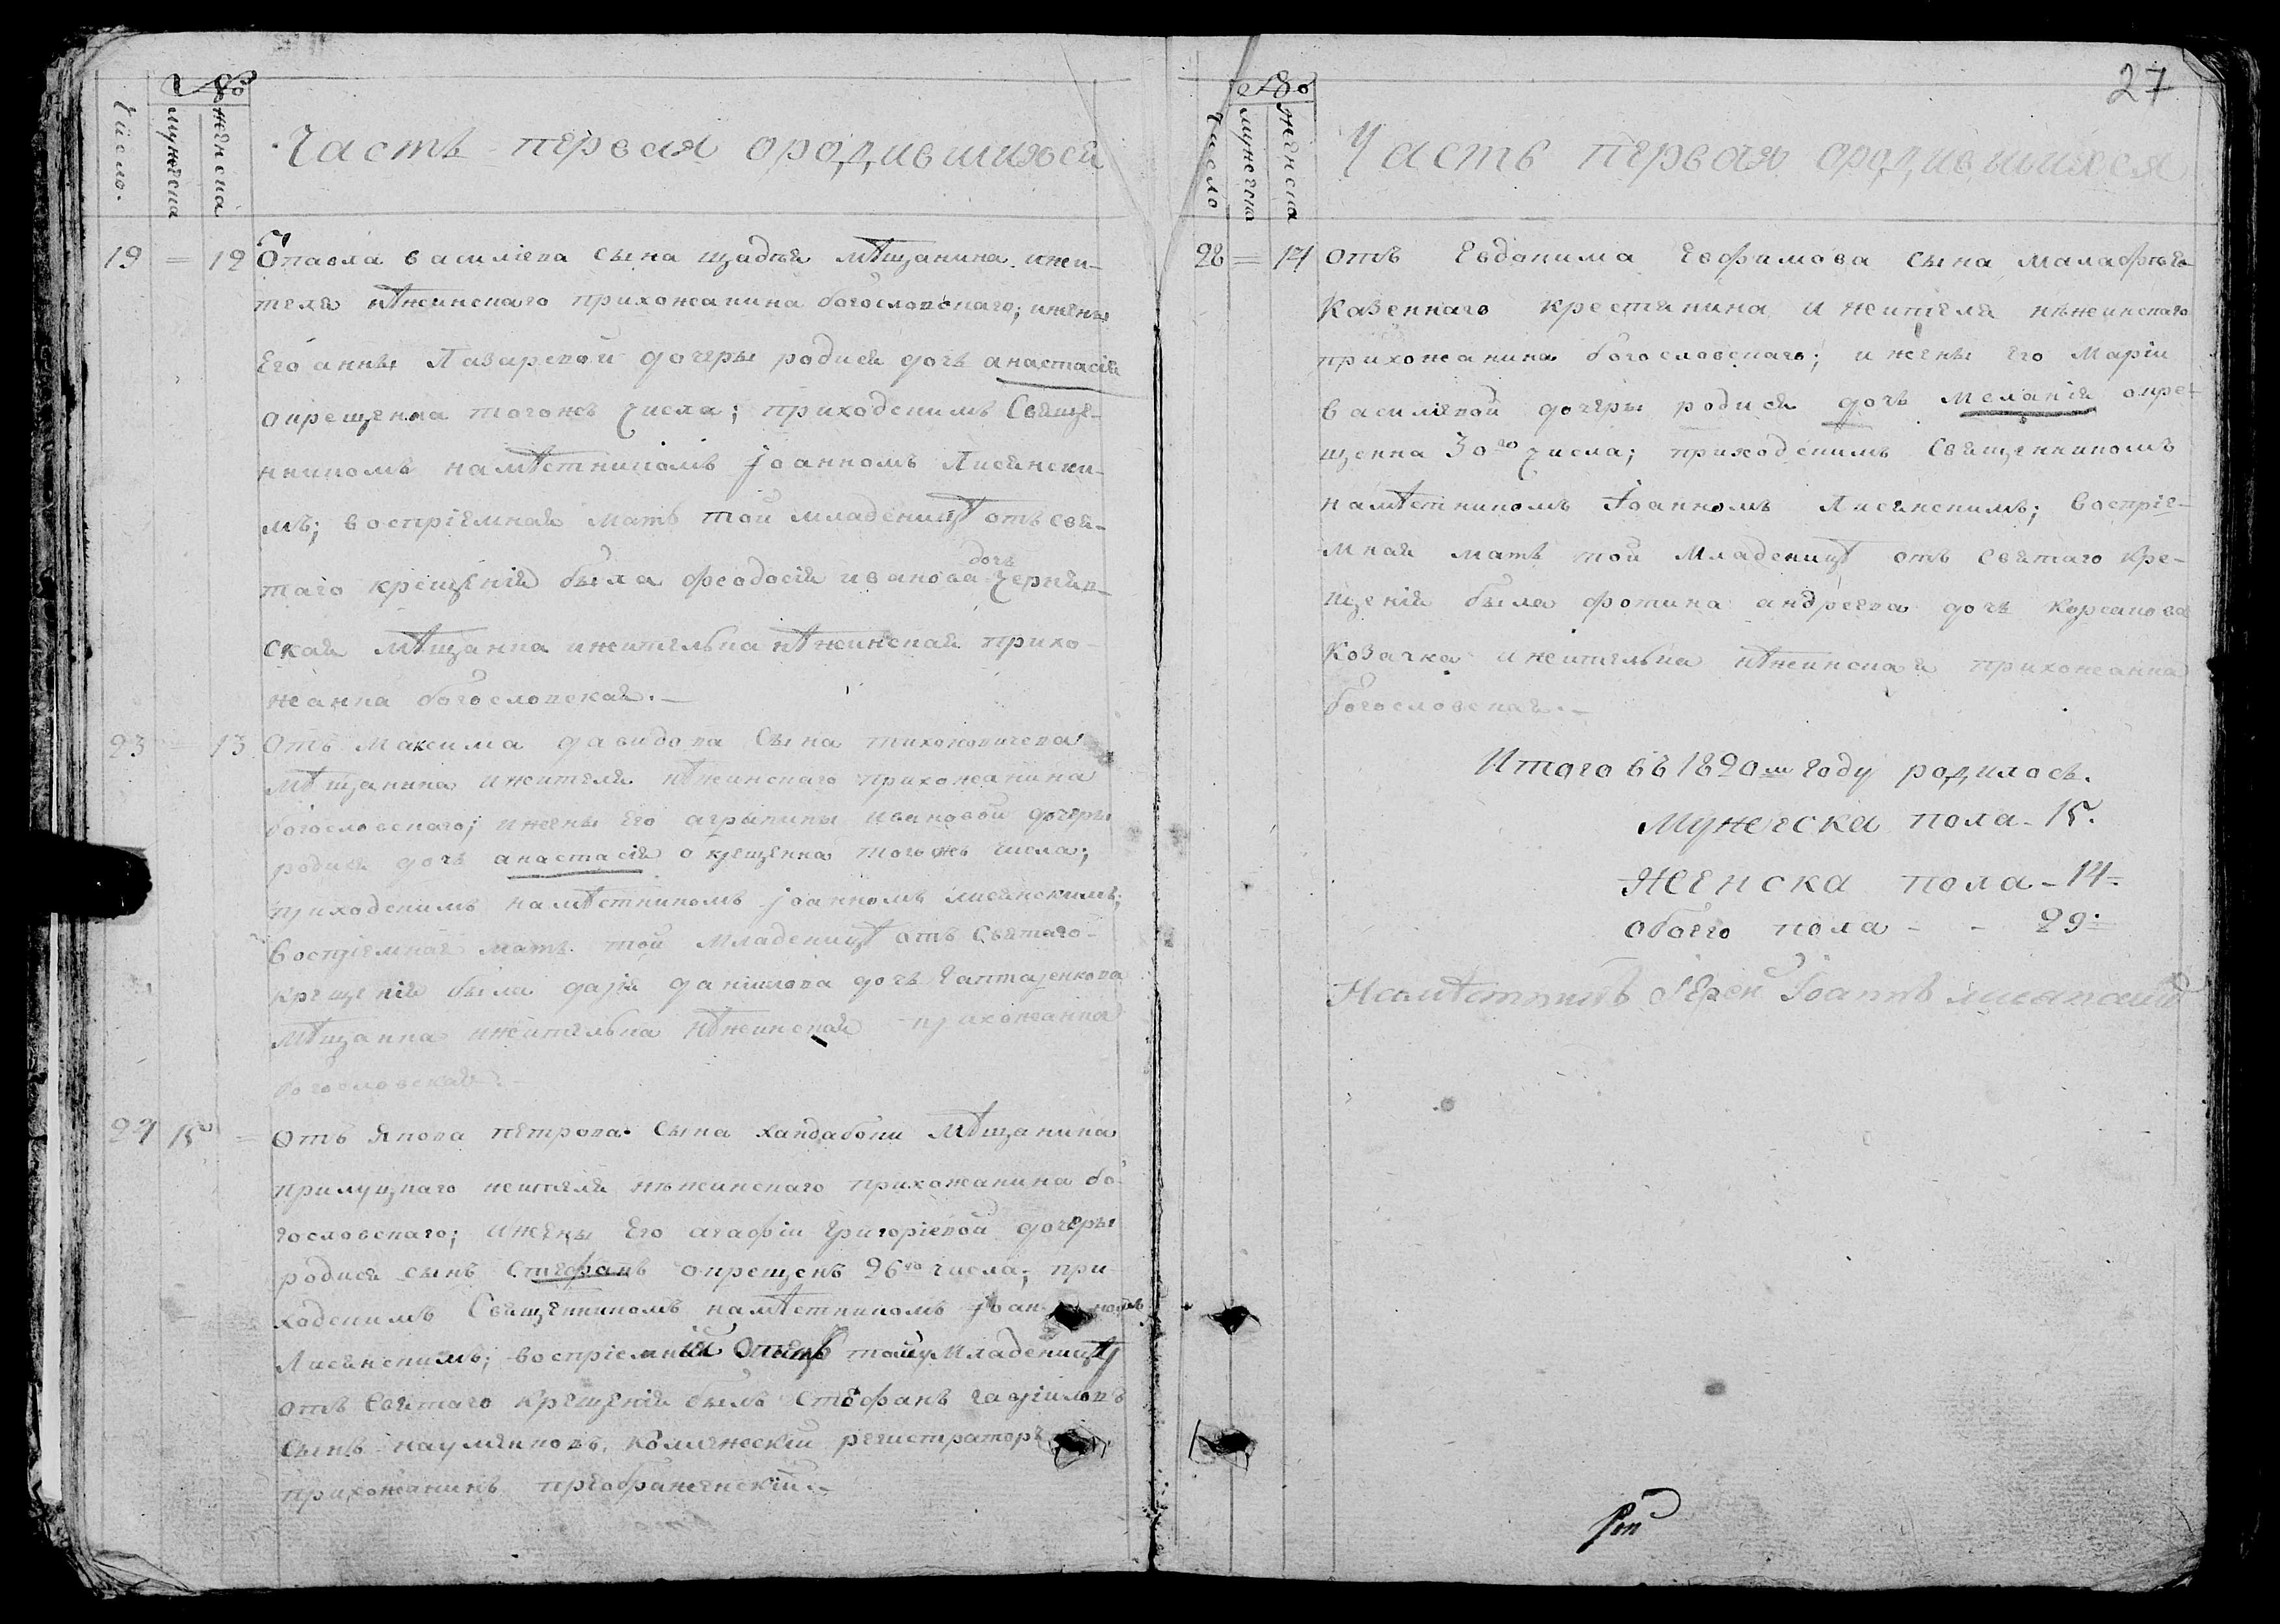 №
Число.
мужеска
женска
Часть первая ородившихся
19 = 12 Ѿ павла василіева сына щадъя мѣщанина ижи-
теля нѣжинскаго прихожанина богословскаго; ижены
Его анны Лазаревой дочеры родися дочъ анастасія
окрещенна тогожъ числа; приходскимъ Свяще-
нникомъ намѣстникомъ Іоанномъ Лисянски-
мъ; воспріемная мать той младеницѣ отъ свя-
таго крещенія была феодосія иванова дочъ Черняв-
ская мѣщанка ижителька нѣжинская прихо-
жанка богословская.-
23 = 13 Отъ Максима давидова Сына тихоновичева
мѣщанина ижителя нѣжинскаго прихожанина
богословскаго; ижены Его агрыпины ивановой дочеры
родися дочъ анастасія окрещенна тогожъ числа;
приходскимъ намѣстникомъ Іоанномъ лисянскимъ;
Воспріемная мать той младеницѣ отъ Святаго
крещенія была дарія даніилова дочъ
мѣщанка ижителька нѣжинская прихожанка
богословская.-
24 15 = Отъ Якова петрова Сына хандабоки мѣщанина
прилуцкаго жителя нѣжинскаго прихожанина бо-
гословскаго; ижены Его агафіи Григоріевой дочеры
родися сынъ Стефанъ окрещенъ 26го числа; при-
ходскимъ Священникомъ намѣстникомъ Іоанномъ
Лисянскимъ; воспріемній Отецъ тому Младеницу
отъ Святаго крещенія былъ Стефанъ гавріиловъ
Сынъ науменковъ, коллежскій регистраторъ
прихожанинъ преображенскій.-
27
№
Число
мужеска
женска
Часть первая ородившихся
28 = 14 отъ Евдокима Евфимова сына
Казеннаго крестянина и жителя нѣжинскаго
прихожанина богословскаго; и жены Его Маріи
василіевой дочеры родися дочъ Меланія окре-
щенна 30го числа; приходскимъ Священникомъ
намѣстникомъ Іоанномъ Лисянскимъ; воспріе-
мная мать той Младеницѣ отъ святаго кре-
щенія была фотина андреева дочъ корсакова
Козачка ижителька нѣжинская прихожанка
богословская.-
Итого въ 1820м году родилось.
Мужеска пола - 15.
Женска пола - 14=
обоего пола - - 29.
Намѣстникъ Іерей Іоаннъ лисянскій